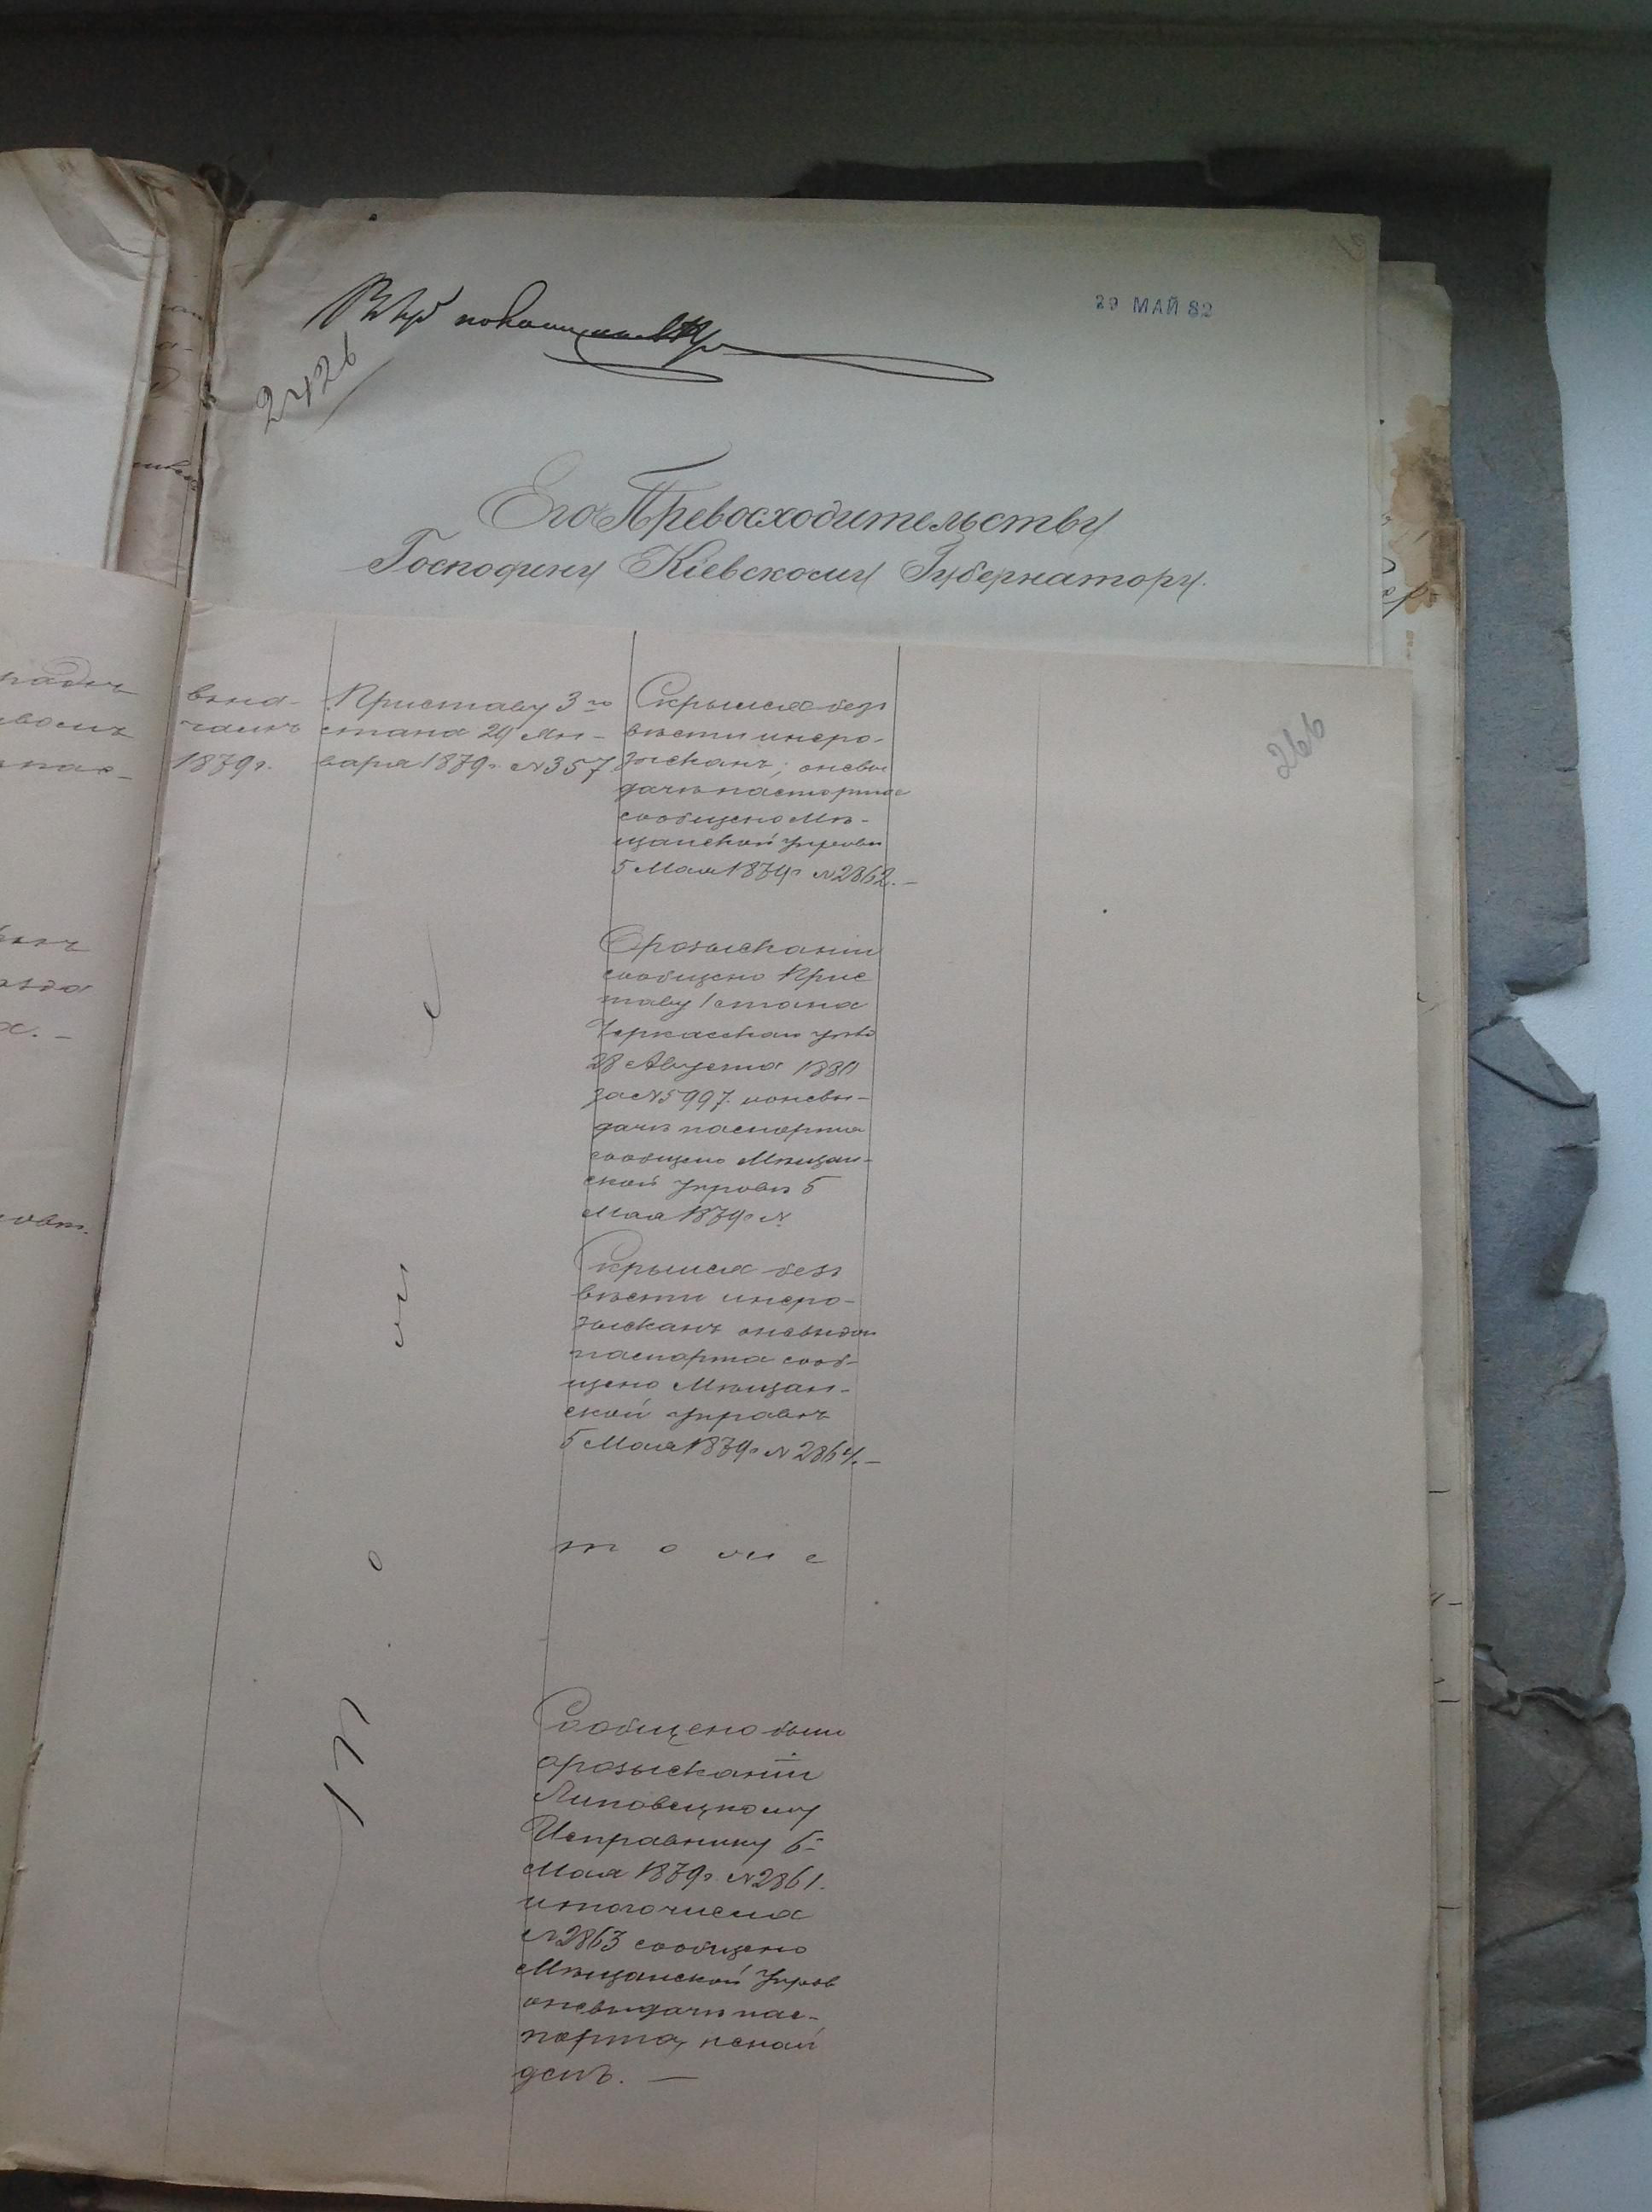 29 МАЙ 82
2426
Его Превосходительству
Господину Кіевскому Губернатору.
266
вна-
чалѣ
1879 г.
Приставу 3 го
стана 29 Ян-
варя 1879 г. № 357
Скрылся безъ
вѣсти и не ро-
зысканъ; о невы
дачѣ паспорта
сообщено Мѣ-
щанской Управѣ
5 Мая 1879 г № 2862.—
О розысканіи
сообщено Прис
таву 1 стана
Черкасскаго уѣз
28 Августа 1880
за № 5997. и о невы-
дачѣ паспорта
сообщено Мѣщан-
ской Управѣ 5
Мая 1879 г №
Скрылся безъ
вѣсти и не ро-
зысканъ о невыдачи
паспорта сооб-
щено Мѣщан-
ской Управѣ
5 Мая 1879 г № 2864.—
т о ж е
Сообщено было
о розысканіи
Липовецкому
Исправнику 5-
Мая 1879 г. № 2861.
и того числа
№ 2863 сообщено
Мѣщанской Управ
о невыдачѣ пас-
порта, ненай
денъ. —
т о ж е